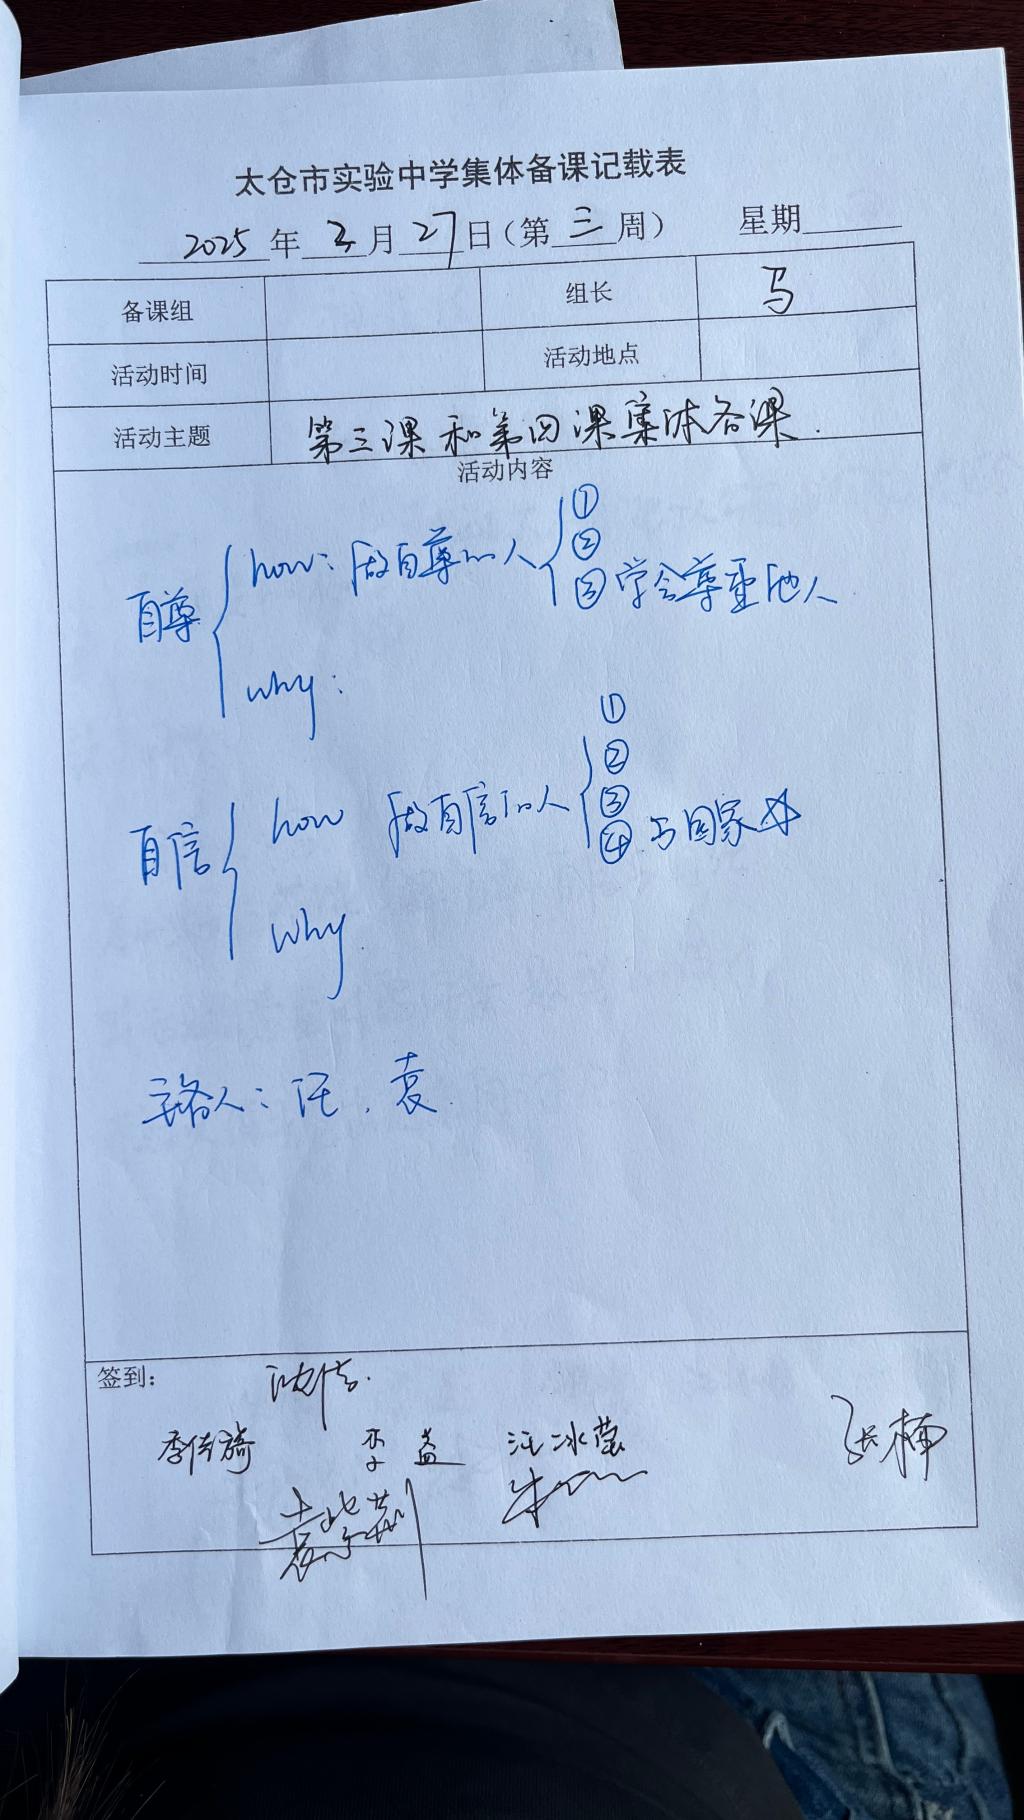 太仓市实验中学集体备课记载表
2025年3月27日(第三周) 星期
备课组 组长 马
活动时间 活动地点
活动主题 第三课和第四课集体备课.
活动内容
自尊 how: 做自尊的人 ①
②
③学会尊重他人
why:
自信 how 做自信的人 ①
②
③
④与国家
why
主备人: 汪. 袁
签到:
李 益 汪冰莹 张楠
袁紫荆 朱